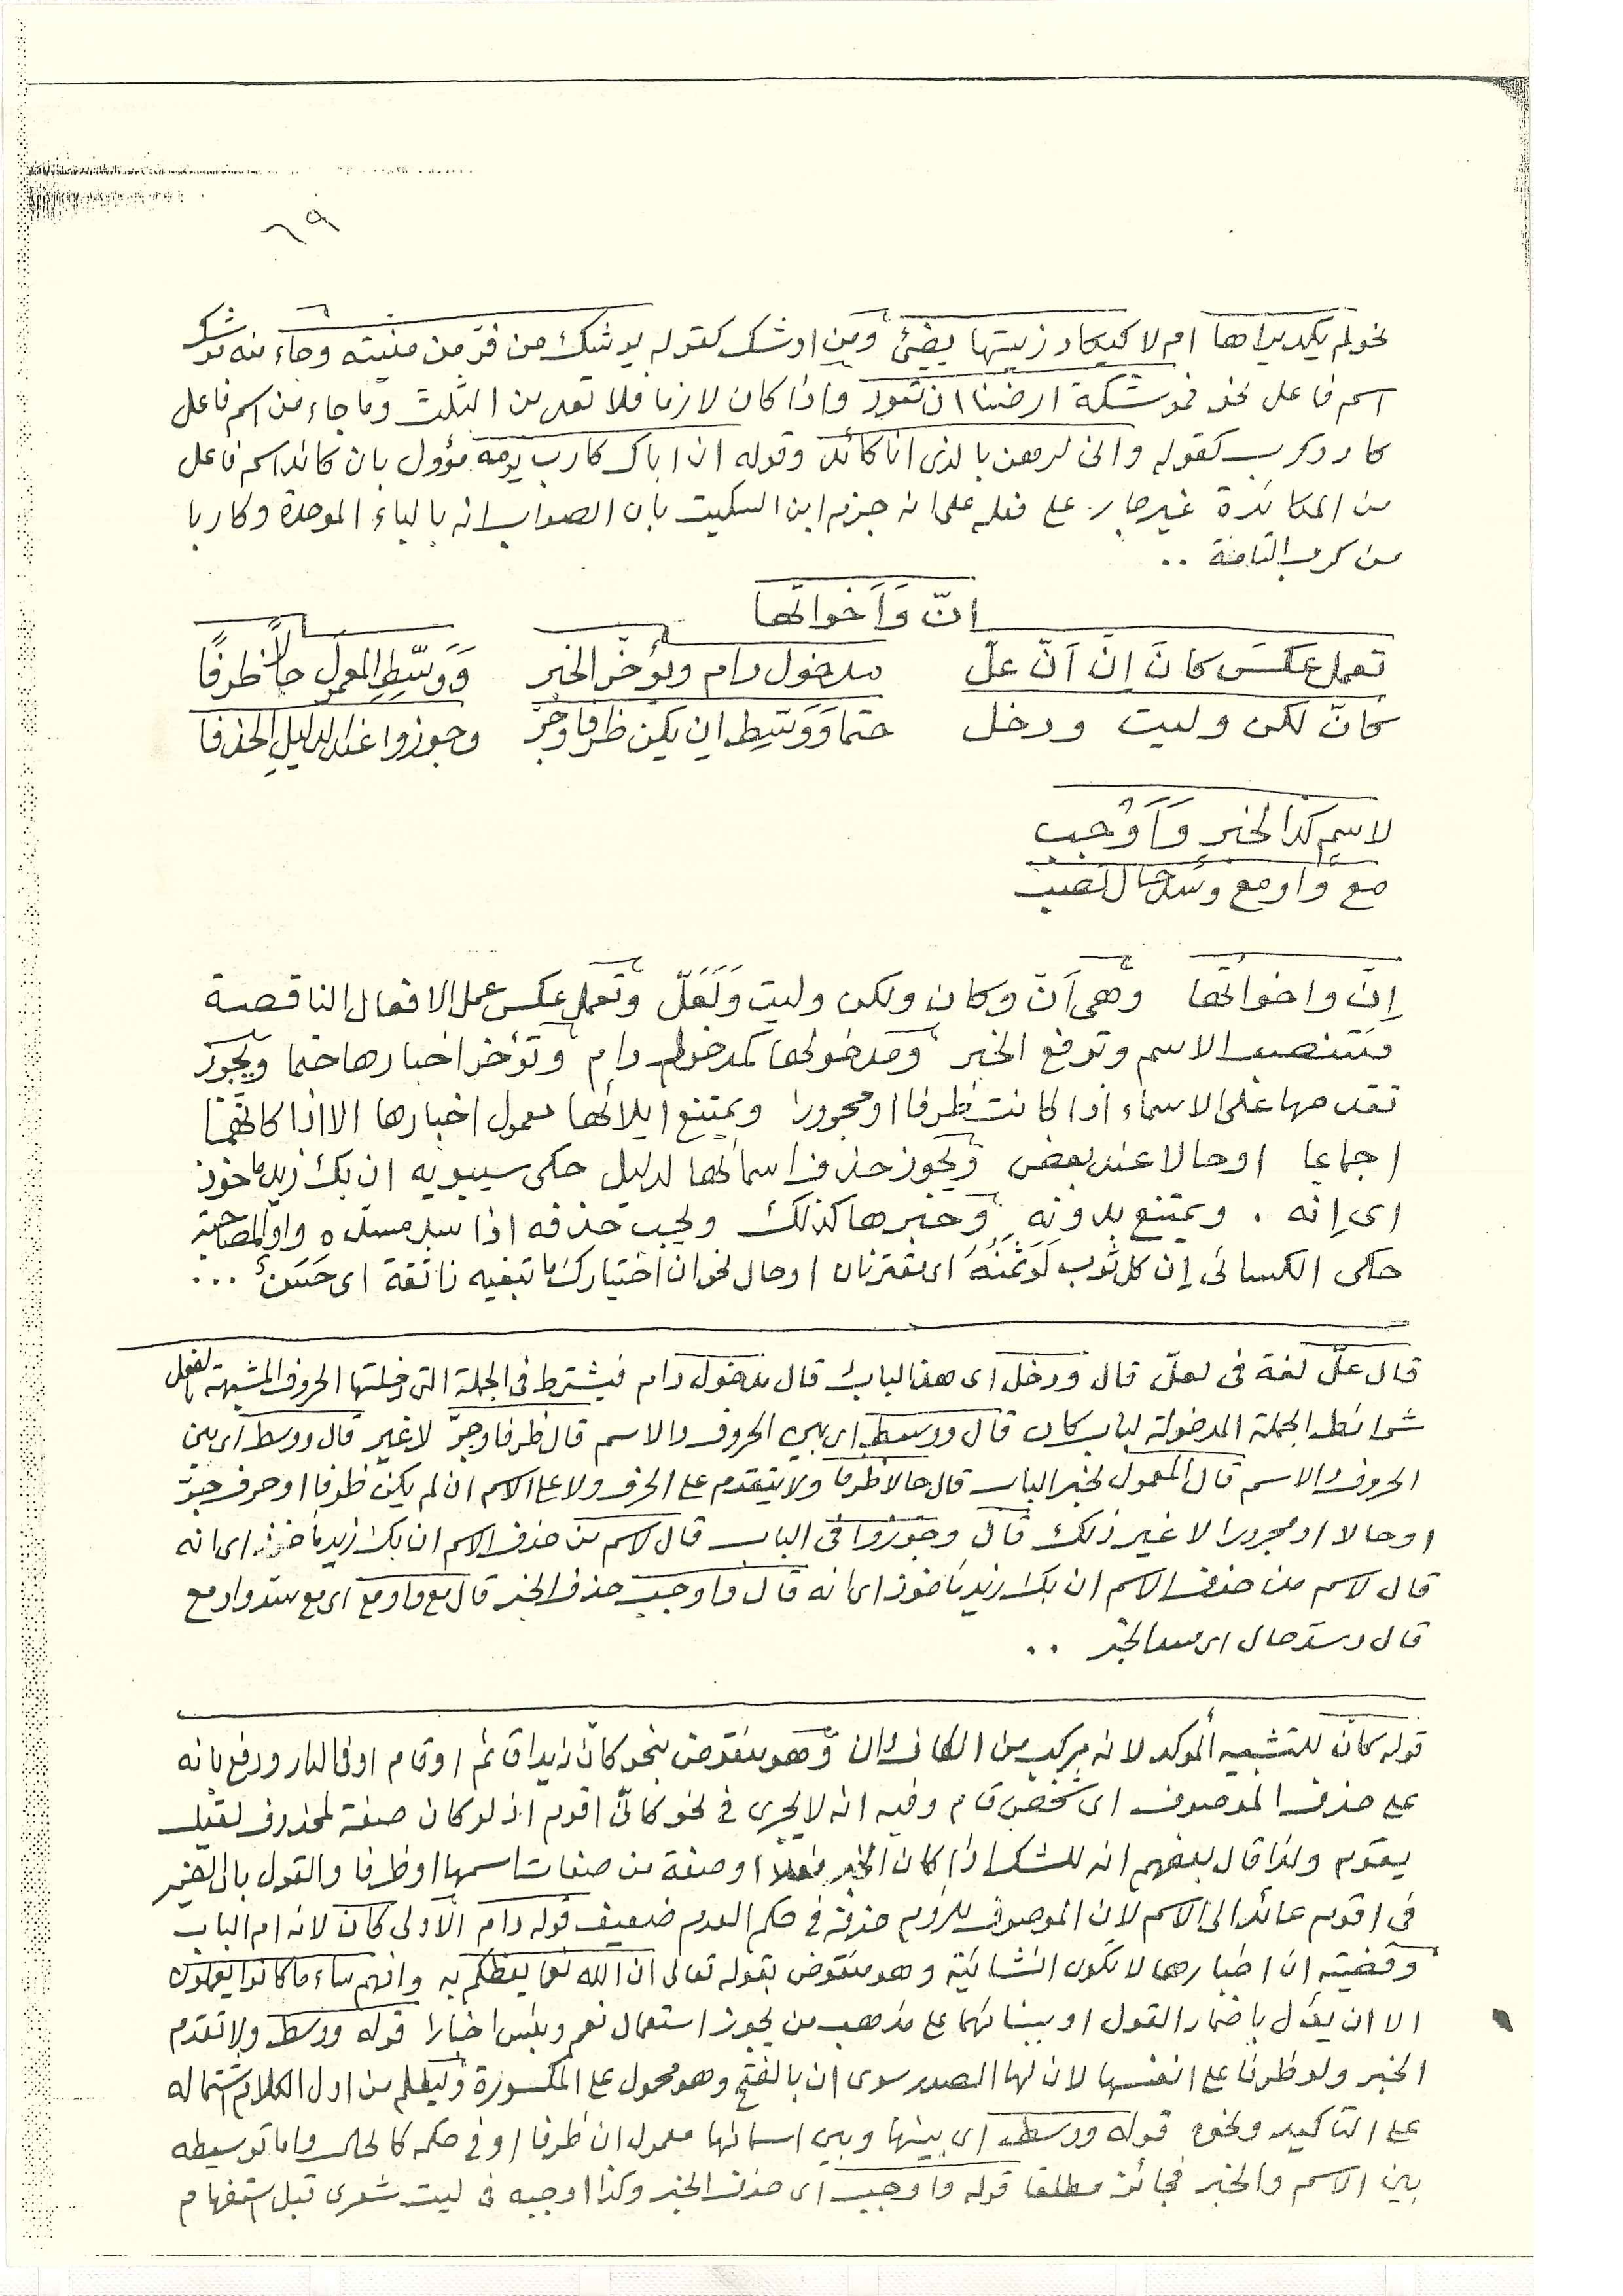 ٦٩
نحو لم يكد يراها ام لا كيكاد زيتها يضئ ومن اوشك كقوله يوشك من فر من منيته وجاء منه يوشك
اسم فاعل نحو فموشكة ارضنا ان تعود واذا كان لازما فلا تعد من الثلث وما جاء من اسم فاعل
كاد وكرب كقوله وانى لرهن بالذى انا كائد وقوله ان اباك كارب يومه مؤول بان كائدا اسم فاعل
من المكائدة غير جار على فعله على انه جزم ابن السكيت بان الصواب انه بالباء الموحدة وكاربا
من كرب التامة ..
انّ وَاَخواتها
تعمل عكسَ كانَ اِنّ اَنّ علّ مدخول دام ويؤخّر الخبر وَوَسِّطِ المعمول حالا ظرفًا
كانّ لكن وليت ودخل حتما وَوَسِّط ان يكن ظرفا وجرّ وجوزوا عند الدليلِ الحذفا
لاسمٍ كذا الخبر وَاَوْجب
مع واو مع وسدّ حال تصب
اِنّ واخواتها وهى اَنّ وكان ولكن وليت وَلَعَلّ وتعمل عكس عمل الافعال الناقصة
فتنصب الاسم وترفع الخبر ومدخولها كمدخول دام وتؤخر اخبارها حتما ويجوز
تقدمها على الاسماء اذا كانت ظرفا او مجرورا ويمتنع ايلائها معمول اخبارها الا اذا كانهما
اجماعا او حالا عند بعض ويجوز حذف اسمائها لدليل حكى سيبويه ان بك زيد ماخوذ
اى اِنه . ويمتنع بدونه وخبرها كذلك ويجب حذفه اذا سد مسده واو المصاحبة
حكى الكسائى اِن كل ثوب لَوَثَمَنُهُ اى مقترنان او حال نحو ان اختيارك ما تبغيه ذا ثقة اى حَسَنٌ ...
قال علّ لغة فى لعلّ قال ودخل اى هذا الباب قال مدخول دام فيشترط فى الجملة التى دخلتها الحروف المشبهة بالفعل
شرائط الجملة المدخولة لباب كان قال ووسط اى بين الحروف والاسم قال ظرفا وجرّ لا غير قال ووسط اى بين
الحروف والاسم قال المعمول لخبر الباب قال حالا ظرفا ولا يتقدم على الحرف ولا على الاسم ان لم يكن ظرفا او حرف جرّ
او حالا او مجرورا لا غير ذلك قال وجوزوا فى الباب قال لاسم من حذف الاسم ان بك زيد ماخوذ اى انه
قال لاسم من حذف الاسم ان بك زيد ماخوذ اى انه قال واوجب حذف الخبر قال مع واو مع اى مع سد واو مع
قال وسدّ حال اى مسد الخبر ..
قوله كانّ للتشبيه المؤكد لانه مركب من الكاف وان وهو منقوض بنحو كانّ زيدا قائم او قام او فى الدار ودفع بانه
على حذف الموصوف اى شخص قام وفيه انه لا يجرى فى نحو كانّى اقوم اذ لو كان صفة لمحذوف لقيل
يقوم ولذا قال بعضهم انه للشك اذا كان الخبر فعلا او صفة من صفات اسمها او ظرفا والقول بان الضمير
فى اقوم عائد الى الاسم لان الموصوف للزوم حذفه فى حكم العدم ضعيف قوله دام الاولى كان لانه ام الباب
وقضيته ان اخبارها لا تكون انشائية وهو منقوض بقوله تعالى ان الله نعما يعظكم به وانهم ساء ما كانوا يعملون
الا ان يؤل باضمار القول او ببنائهما على مذهب من يجوز استعمال نعم وبئس اخبارا قوله ووسط ولا تقدم
الخبر ولو ظرفا على انفسها لان لها الصدر سوى ان بالفتح وهو محمول على المكسورة وليعلم من اول الكلام اشتماله
على التاكيد ونحوه قوله ووسط اى بينها وبين اسمائها معمول ان ظرفا او فى حكمه كالحال واما توسيطه
بين الاسم والخبر فجائز مطلقا قوله واوجب اى حذف الخبر وكذا اوجبه فى ليت شعرى قبل استفهام